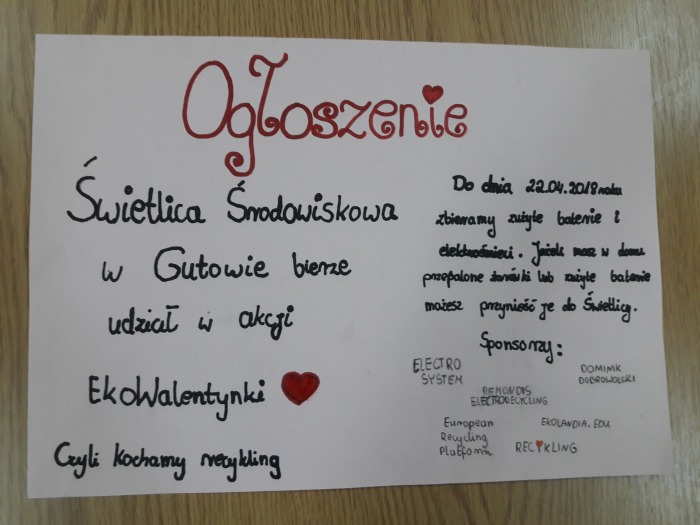 Ogłoszenie
Świetlica Środowiskowa
w Gutowie bierze
udział w akcji
EkoWalentynki
Czyli kochamy recykling
Do dnia 22.04.2018 roku
zbieramy zużyte baterie i
elektrośmieci. Jeżeli masz w domu
przepalone żarówki lub zużyte baterie
możesz przynieść je do Świetlicy.
Sponsorzy:
ELECTRO
SYSTEM
DOMINIK
DOBROWOLSKI
REMONDIS
ELECTRORECYCLING
European
Recycling
Platform
EKOLANDIA.EDU
RECYKLING